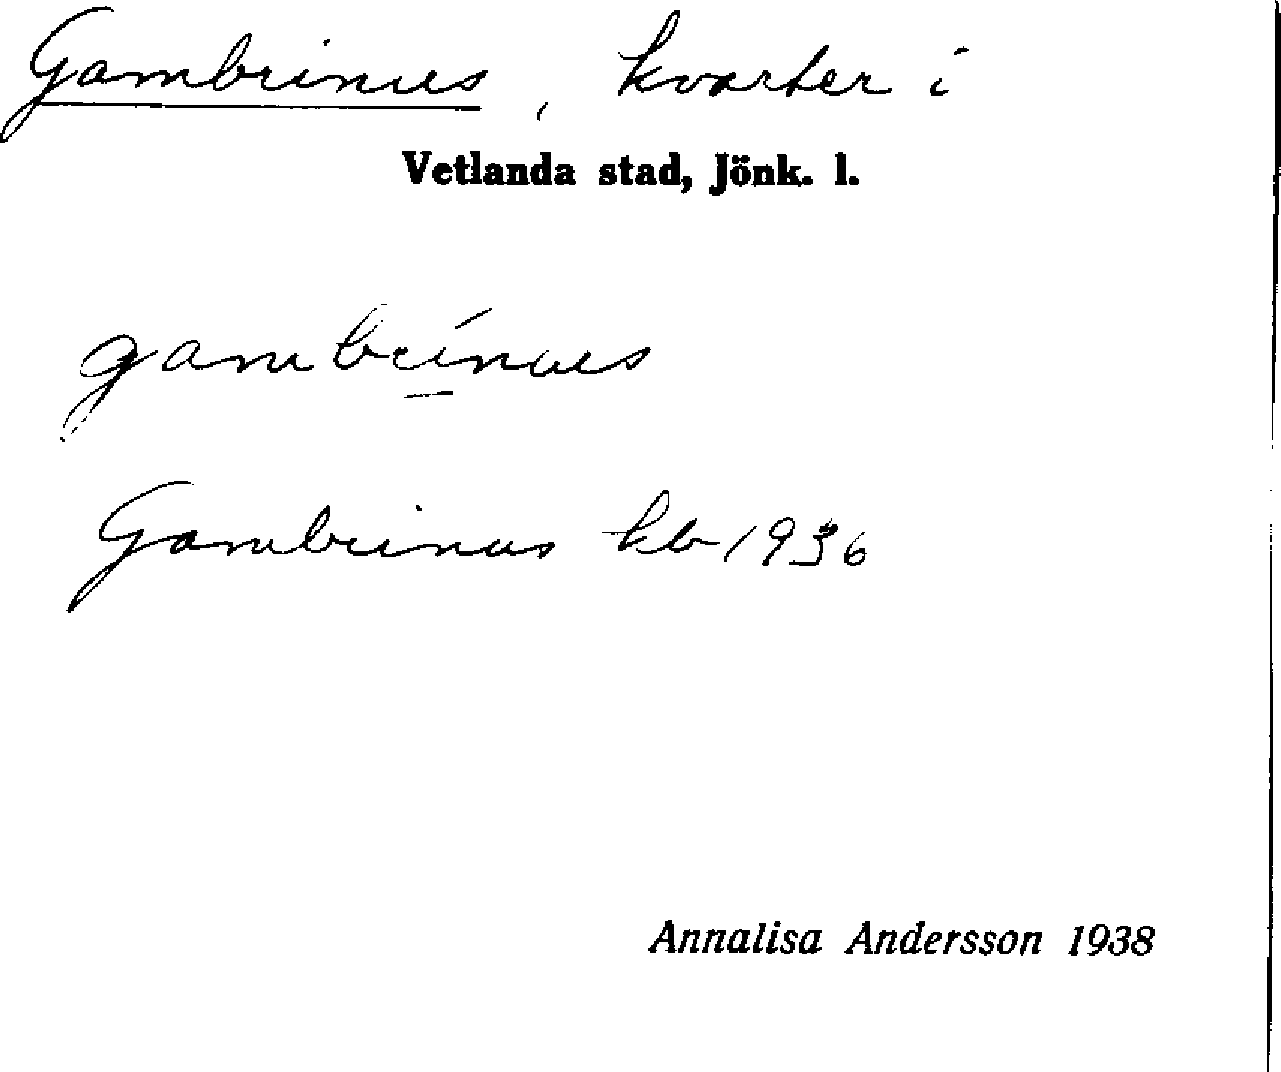 Gambrinus, kvarter i
Vetlanda stad, Jönk. l.
gambrínus
Gambrinus kb 1936
Annalisa Andersson 1938